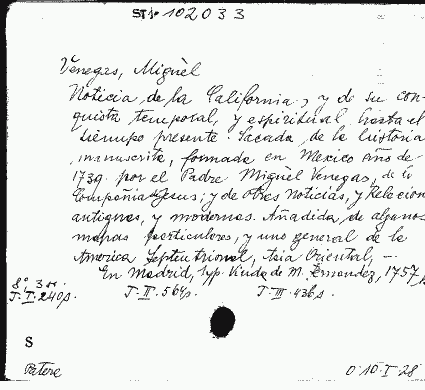 ST№ 102033
Venegas, Miguèl
Noticia de la California, y de su con-
quista temporal, y espiritual hasta el
tiempo presente. Sacada de la historia
manuscrita, formada en Mexico año de
1739. por el Padre Miguèl Venegas, de la
Compañia de Jesus; y de otras Noticias, y Relacion
antiguas, y modernas. Añadida de algunos
mapas particulares, y uno general de la
America Septentrional, Asia Oriental, —
En Madrid, Typ. Viuda de M. Fernandez, 1757,
8º, 3 
T. I. 240p. T. II. 564p. T. III. 436p.
S
0.10.I.28